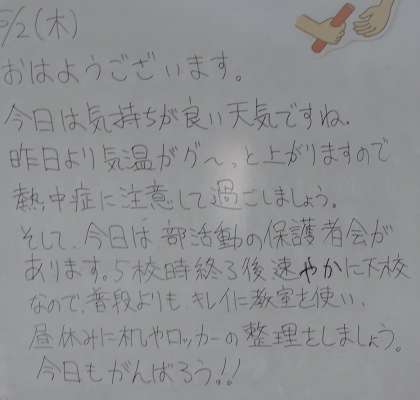 5/2(木)
おはようございます。
今日は気持ちが良い天気ですね.
昨日より気温がグ〜っと上がりますので
熱中症に注意して過ごしましょう。
そして、今日は部活動の保護者会が
あります。5校時終了後速やかに下校
なので、普段よりもキレイに教室を使い、
昼休みに机やロッカーの整理をしましょう。
今日もがんばろう!!